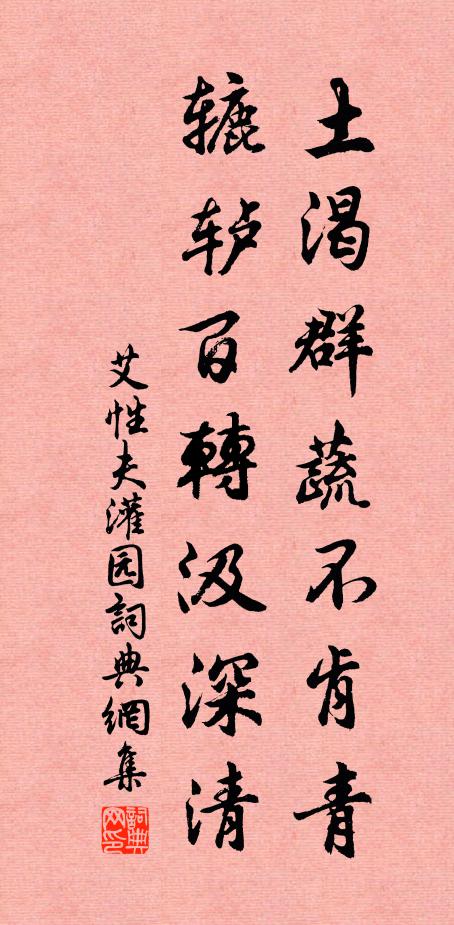 土渴群蔬不肯青
辘轳百轉汲深清
艾性夫灌园詞典網集
詞典网印